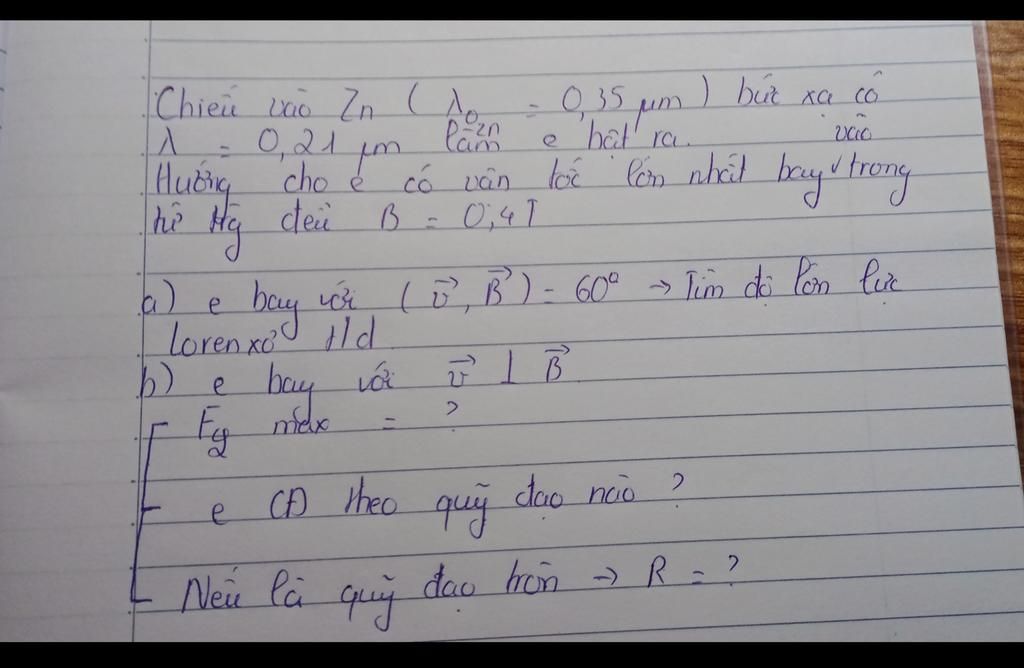 Chiếu vào Zn ( λ₀ Zn = 0,35 μm ) bức xạ có
λ = 0,21 μm làm e bật ra.
Hướng cho e có vận tốc lớn nhất bay vào trong
đều B = 0,4T
a) e bay với ( v⃗, B⃗ ) = 60° → Tìm độ lớn lực
lorenxơ t/d
b) e bay với v⃗ ⊥ B⃗
max = ?
e CĐ theo quỹ đạo nào ?
Nếu là quỹ đạo tròn → R = ?